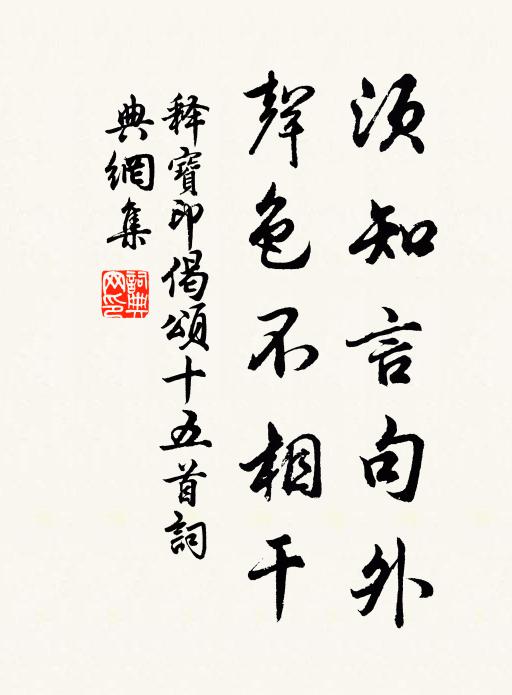 须知言句外
聲色不相干
释寶印偈頌十五首詞
典網集
詞典網印